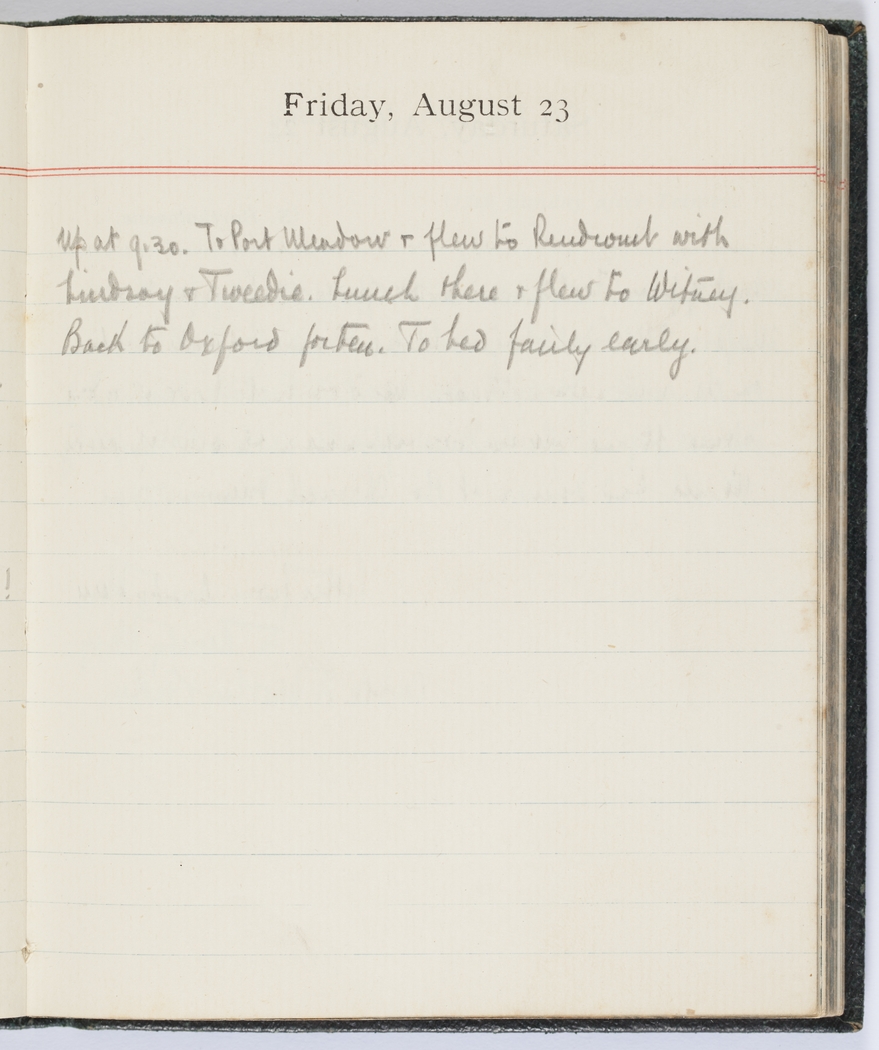 Friday, August 23
Up at 9.30. To Port Meadow + flew to Rendcomb with
Lindsay + Tweedie. Lunch there + flew to Witney.
Back to Oxford for tea. To bed fairly early.
!